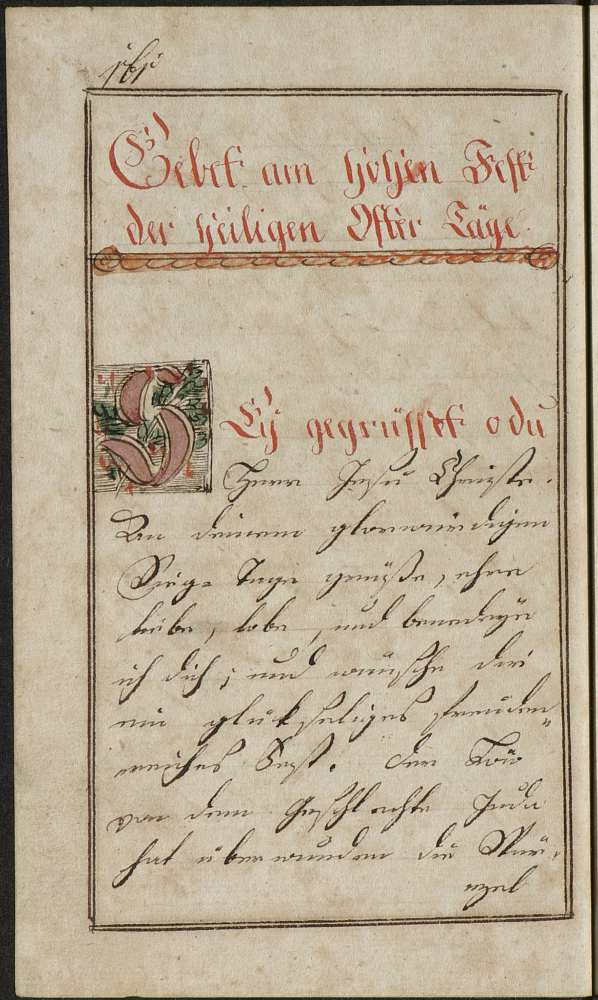 161
Gebet am hohen Fest
der heiligen Oster Täge.
SEÿ gegrüsset o du
Herr Jesu Christe.
An deinem glorwürdigen
Sieg= Tage grüße, ehre
liebe, lobe, und benedeye
ich dich; und wünsche dir
ein glükseliges freuden=
reiches Fest. Der Löw
von dem Geschlechte Juda
hat überwunden die Wur=
zel